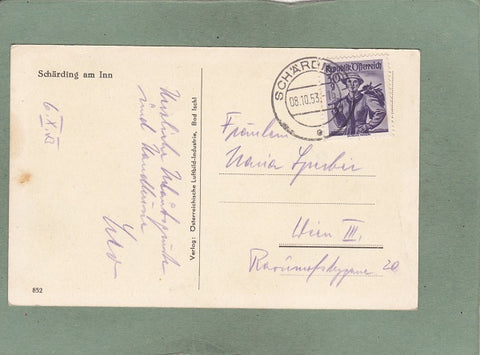 Schärding am Inn
6.X.53
Herzliche Urlaubsgrüße
und Handküsse
Verlag: Österreichische Luftbild-Industrie, Bad Ischl
SCHÄRDING
08.10.53
Republik Österreich
Fräulein
Maria
Wien III.
Rasumofskygasse 20
852